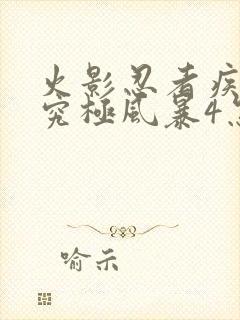 火影忍者疾
究极风暴4
喻示